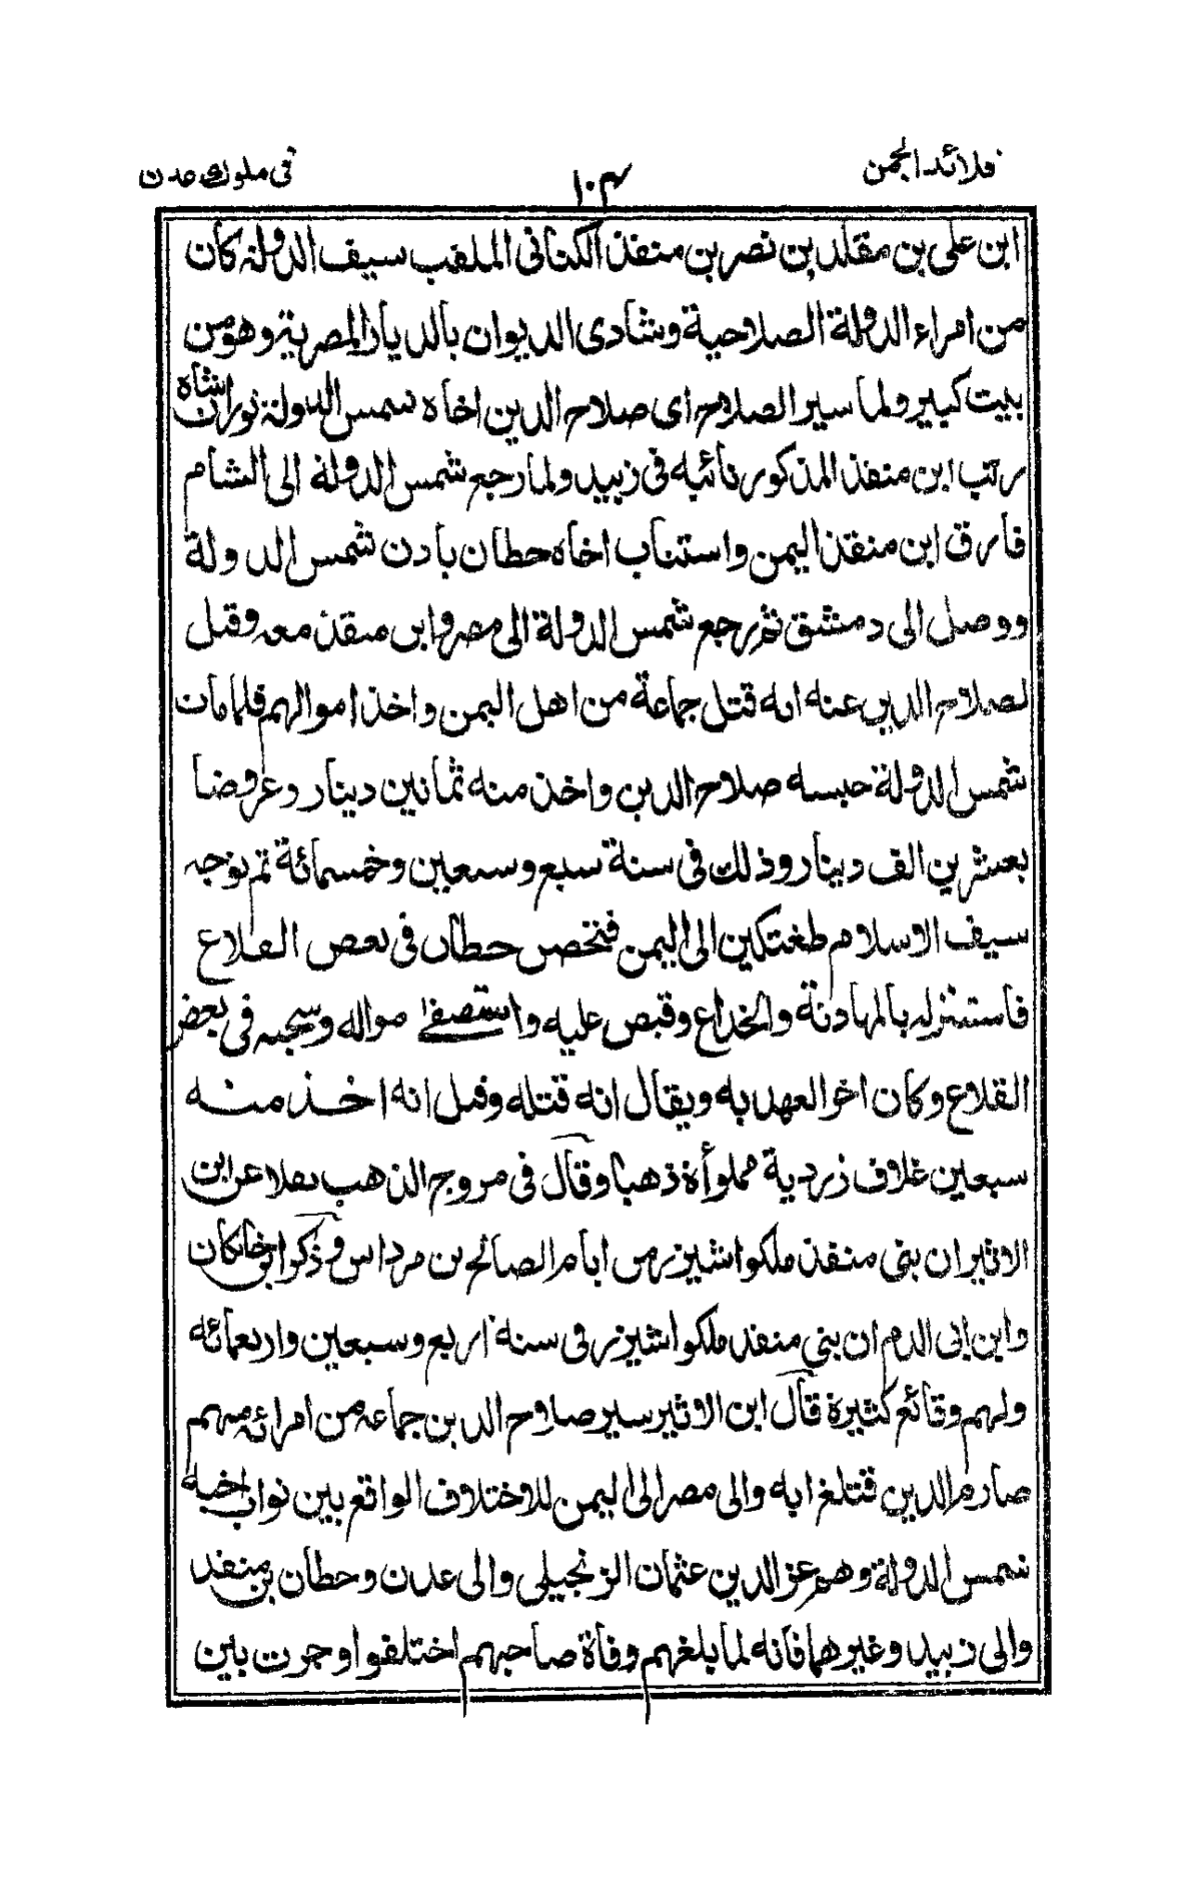 قلائد الجمن
١٠٣
في ملوك عدن
ابن علي بن مقلد بن نصر بن منقذ الكناني الملقب سيف الدولة كان
من امراء الدولة الصلاحية وشادى الديوان بالديار المصرية وهو من
بيت كبير ولما سير الصلاح اى صلاح الدين اخاه شمس الدولة توران شاه
رتب ابن منقذ المذكور نائبه في زبيد ولما رجع شمس الدولة الى الشام
فارق ابن منقذ اليمن واستناب اخاه حطان باذن شمس الدولة
ووصل الى دمشق ثم رجع شمس الدولة الى مصر وابن منقذ معه وقيل
لصلاح الدين عنه انه قتل جماعة من اهل اليمن واخذ اموالهم فلما مات
شمس الدولة حبسه صلاح الدين واخذ منه ثمانين دينار وعروضا
بعشرين الف دينار وذلك في سنة سبع وسبعين وخمسمائة ثم توجه
سيف الاسلام طغتكين الى اليمن فتحصن حطان في بعض القلاع
فاستنزله بالمهادنة والخداع وقبض عليه واستصفى امواله وسجنه في بعض
القلاع وكان اخر العهد به ويقال انه قتله وقيل انه اخذ منه
سبعين غلاف زردية مملوأة ذهبا وقال في مروج الذهب نقلا عن ابن
الاثير ان بني منقذ ملكوا شيزر من ايام الصالح بن مرداس وذكر ابن خلكان
وابن ابي الدم ان بني منقذ ملكوا شيزر في سنه اربع وسبعين واربعمائه
ولهم وقائع كثيرة قال ابن الاثير سير صلاح الدين جماعه من امرائه منهم
صارم الدين قتلغ ابه والى مصر الى اليمن للاختلاف الواقع بين نواب اخيه
شمس الدولة وهم عز الدين عثمان الزنجيلي والى عدن وحطان بن منقذ
والى زبيد وغيرهما فانه لما بلغهم وفاة صاحبهم اختلفوا وجرت بين